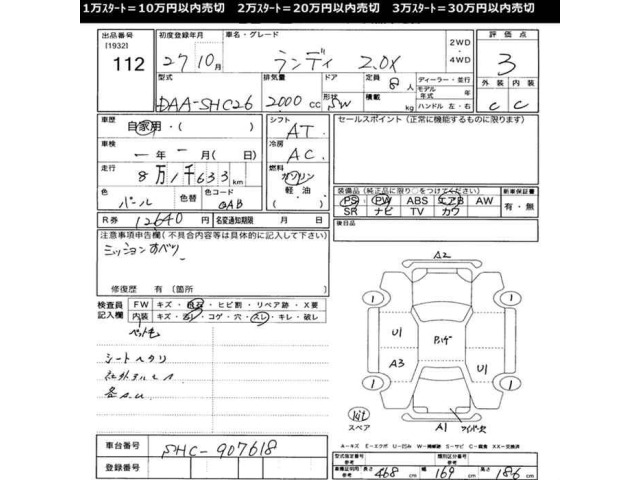 1万ｽﾀｰﾄ＝10万円以内売切　2万ｽﾀｰﾄ＝20万円以内売切　3万ｽﾀｰﾄ＝30万円以内売切
出品番号
[1932]
112
初度登録年月
27 10月
車名・グレード
ランディ 2.0X
2WD
・
4WD
評価点
3
型式
DAA-SHC26
排気量
2000 CC
ドア
形状
SW
定員
8 人
積載
kg
ディーラー・並行
モデル年式 年
ハンドル 左・右
外装 内装
C C
車歴
自家用・( )
シフト
AT
セールスポイント（正常に機能するものに限ります）
車検
ー年ー月(日)
冷房
AC
走行
8万1千633km
燃料
ガソリン
軽油
( )
色
パール
色替
色コード
QAB
装備品（純正品に限り○をつけてください）
新車保証書
PS PW ABS エアB AW
SR ナビ TV カワ
有・無
R券
12640円
名変通知期限 月 日
後日品
注意事項申告欄(不具合内容等は具体的に記入して下さい)
ミッションすべり
修復歴 有(箇所 )
検査員記入欄
FW キズ・飛石・ヒビ割・リペア跡・X要
内装 キズ・汚レ・コゲ・穴・スレ・キレ・破レ
ペット毛
シートヘタリ
社外アルミ
各A.U
A2
1 1
U1
A3
U1
1 1
A1
kit
スペア
A－キズ E－エクボ U－凹み W－補修跡 S－サビ C－腐食 XX－交換済
車台番号
SHC-907618
登録番号
型式指定番号
参考
類別区分番号
参考
車検証明記載
参考
長さ 468 cm 幅 169 cm 高さ 186 cm